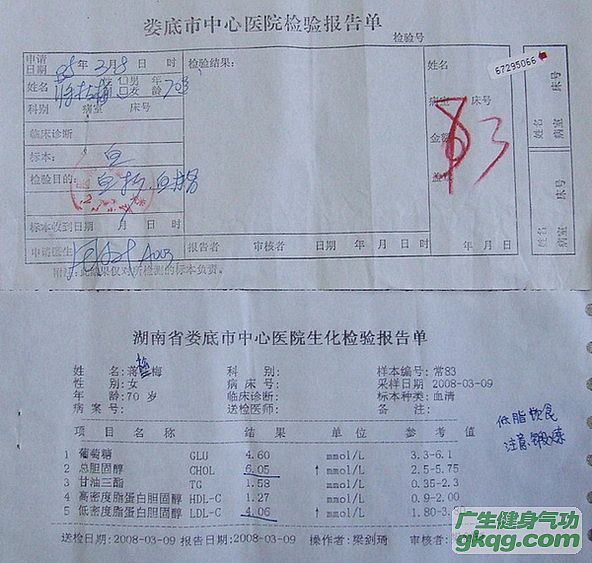 娄底市中心医院检验报告单
检验号
申请日期 年 2月8日 时
检验结果:
姓名
67295066
床号
姓名 男 女 年龄 70岁
科别 病室 床号
病室 床号
姓名 病室
临床诊断
金额
83
标本: 血
检验目的: 血
床号
姓名 病室
标本收到日期 月 日 时
年 月 日
申请医生 报告者 审核者 日期 月 日 时
附注:此结果仅对所检测的标本负责。
湖南省娄底市中心医院生化检验报告单
姓 名:蒋 梅 科 别: 样本编号:常83
性 别:女 病 床 号: 采样日期 2008-03-09
年 龄:70 岁 临床诊断: 标本种类:血清
病 案 号: 送检医师: 备 注:
低脂饮食
注意锻炼
项 目 名 称 结 果 单 位 参 考 值
1 葡萄糖 GLU 4.60 mmol/L 3.3-6.1
2 总胆固醇 CHOL 6.05 ↑ mmol/L 2.5-5.75
3 甘油三酯 TG 1.58 mmol/L 0.35-2.3
4 高密度脂蛋白胆固醇 HDL-C 1.27 mmol/L 0.9-2.00
5 低密度脂蛋白胆固醇 LDL-C 4.06 ↑ mmol/L 1.80-3.
送检日期:2008-03-09 报告日期:2008-03-09 操作者:梁剑琦 审核者:
广生健身气功
gkqg.com